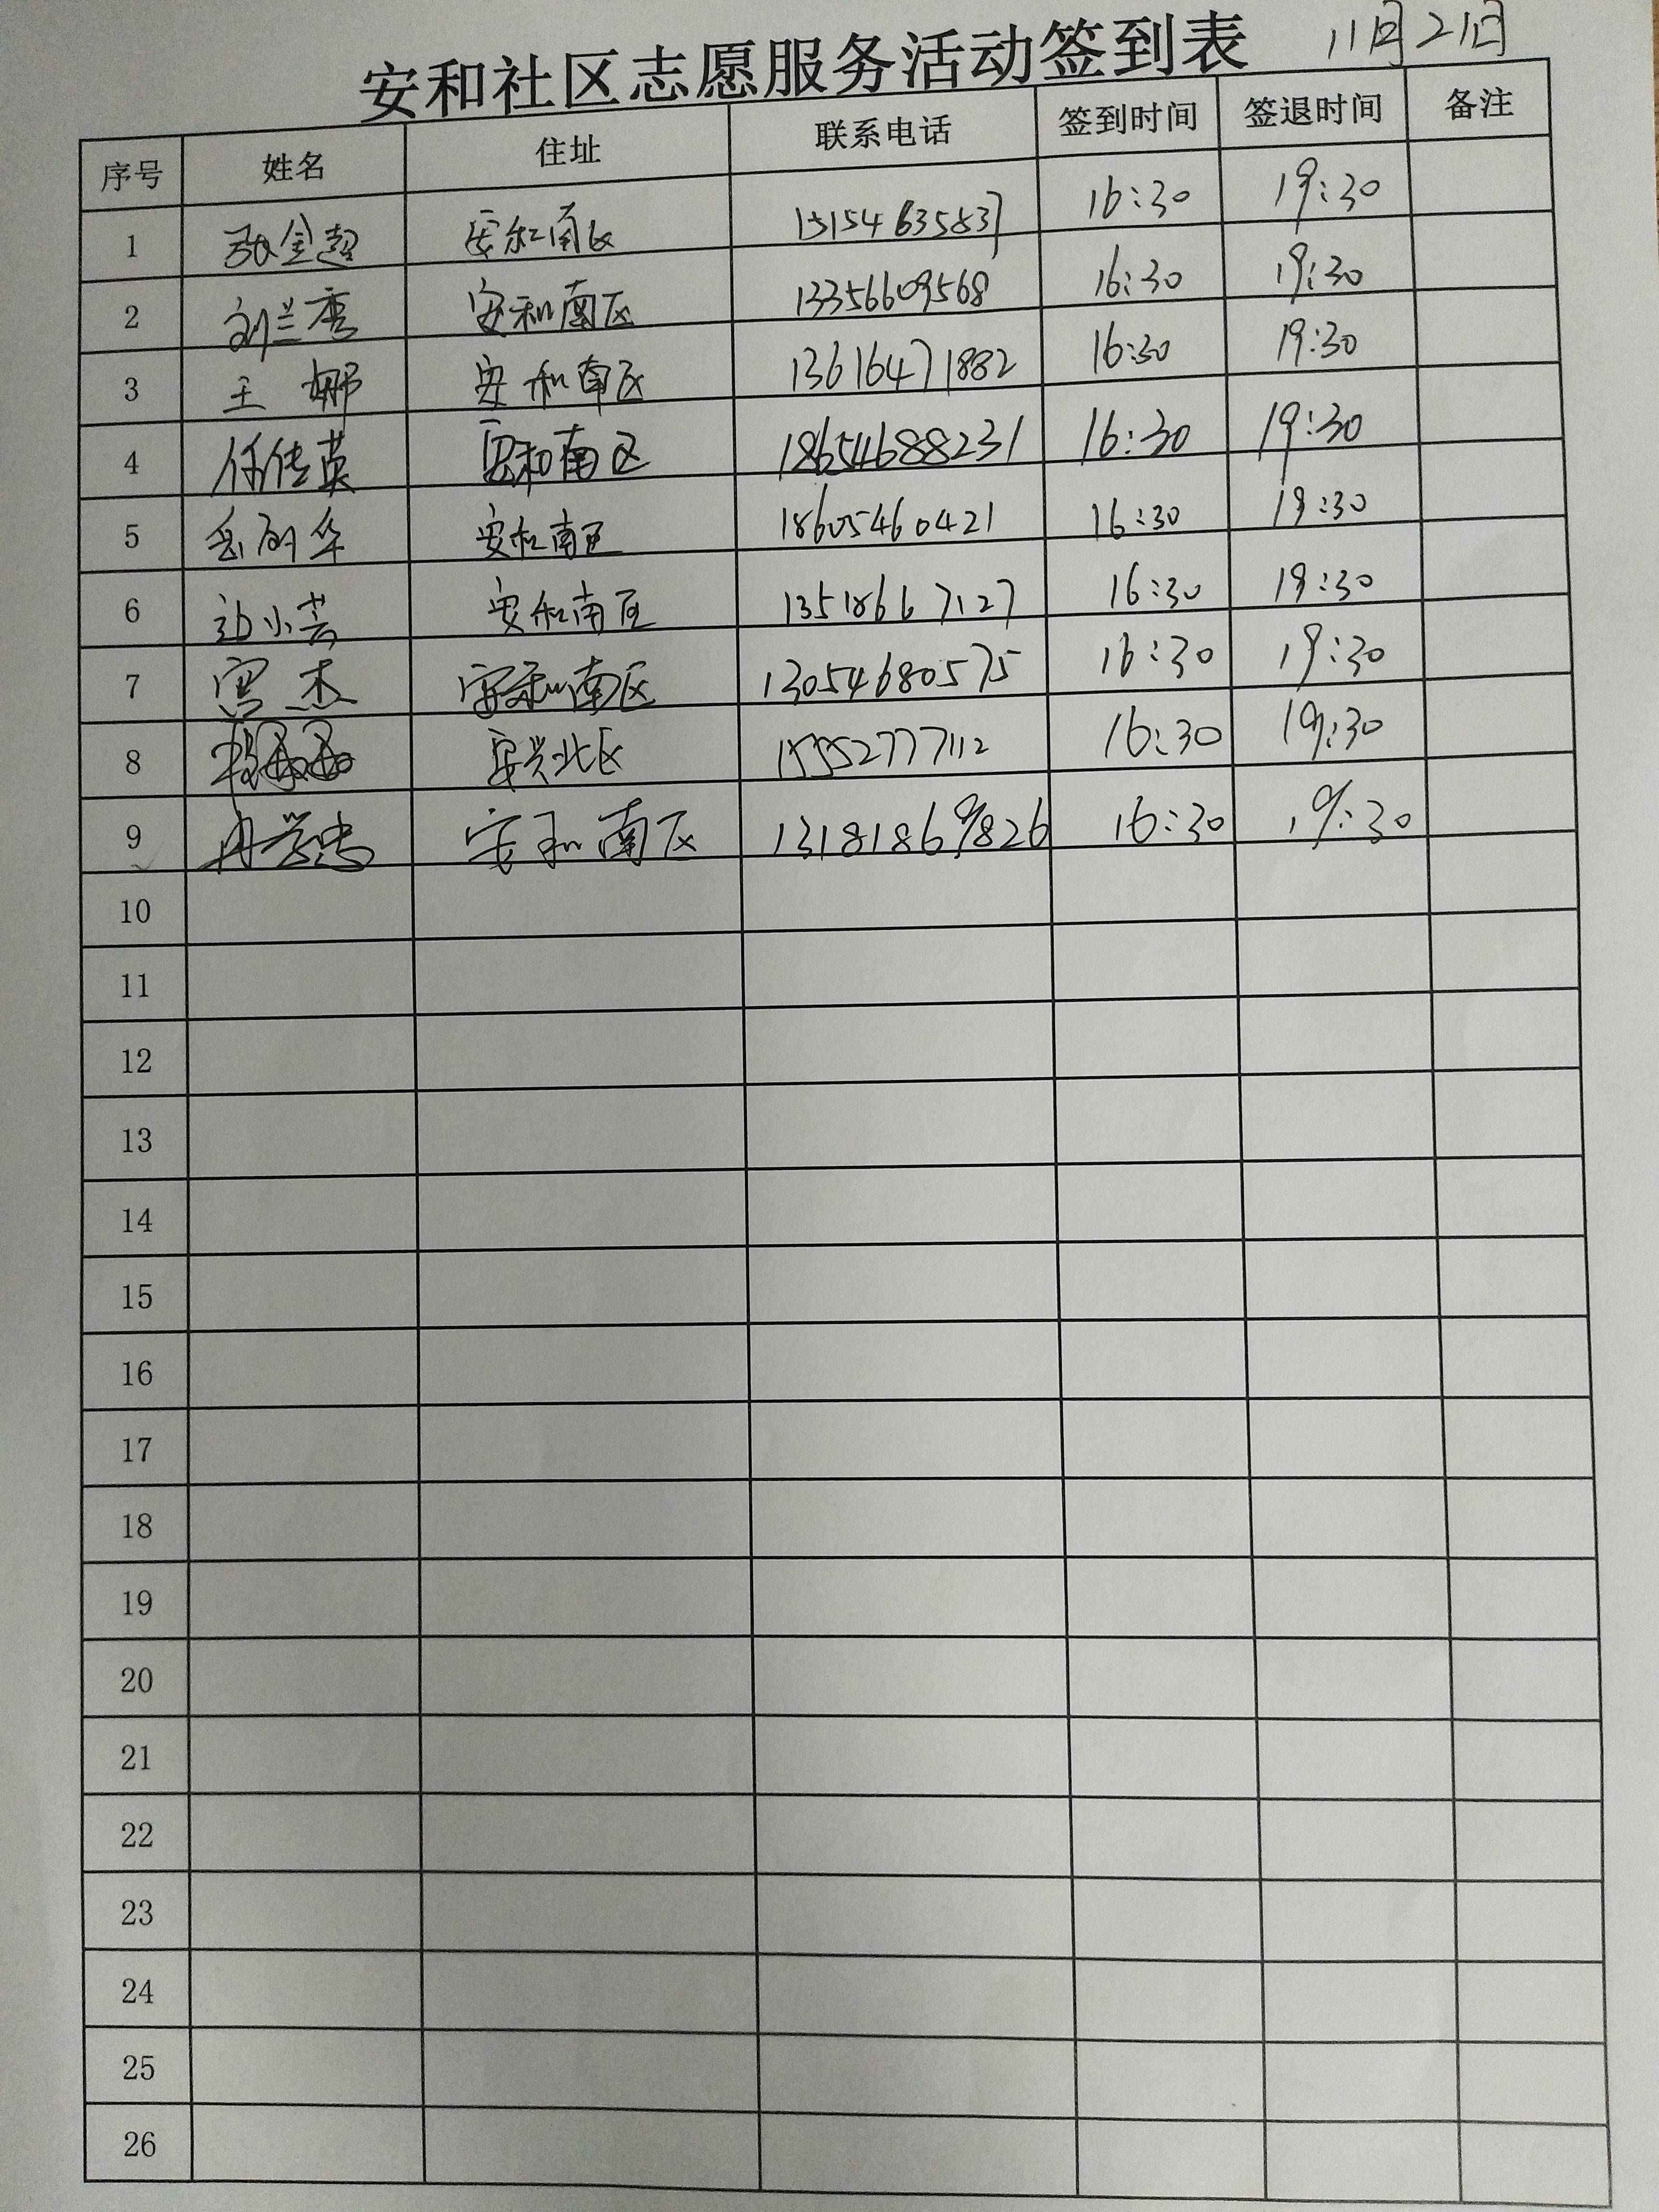 安和社区志愿服务活动签到表 11月21日
序号 姓名 住址 联系电话 签到时间 签退时间 备注
1 张金超 安和南区 15154635837 16:30 19:30
2 刘兰秀 安和南区 13356609568 16:30 19:30
3 王娜 安和南区 13616471882 16:30 19:30
4 任传英 安和南区 18654688231 16:30 19:30
5 安和南区 18605460421 16:30 19:30
6 安和南区 13518667127 16:30 19:30
7 宫杰 安和南区 13054680575 16:30 19:30
8 安兴北区 15552777112 16:30 19:30
9 安和南区 13181869826 16:30 19:30
10
11
12
13
14
15
16
17
18
19
20
21
22
23
24
25
26